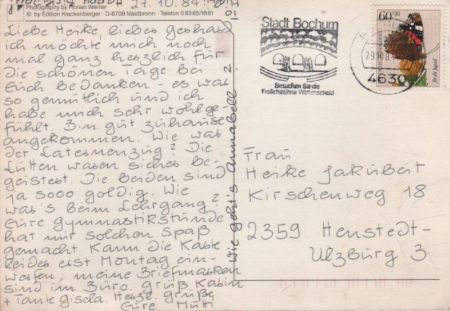 27.10.84
Photography by Florian Werner
© by Edition Krackenberger · D-8709 Maidbronn · Telefon 0 93 65/16 81
Liebe Heike, lieber Gerhard
ich möchte mich noch
mal ganz herzlich für
die schönen Tage bei
Euch bedanken - es war
so gemütlich und ich
habe mich sehr wohlge-
fühlt. Bin gut zuhause
angekommen. Wie war
der Laternenzug? Die
Lütten waren sicher be-
geistert. Die beiden sind
ja sooo goldig. Wie
war's beim Lehrgang?
Eure Gymnastikstunde
hat mir solchen Spaß
gemacht. Kann die Karte
leider erst Montag ein-
werfen, meine Briefmarken
sind im Büro. Gruß Karin
+ Tante Gisela. Herzl. Grüße
Eure Mutti
Wie geht's Annabell?
Stadt Bochum
Besuchen Sie die
Freilichtbühne Wattenscheid
4630
60
Frau
Heike Jakubert
Kirschenweg 18
2359 Henstedt-
Ulzburg 3